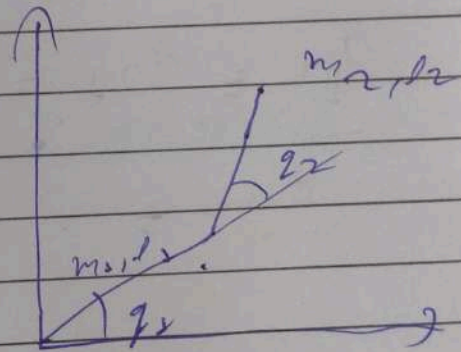 m2, l2
q2
m1, l1
q1